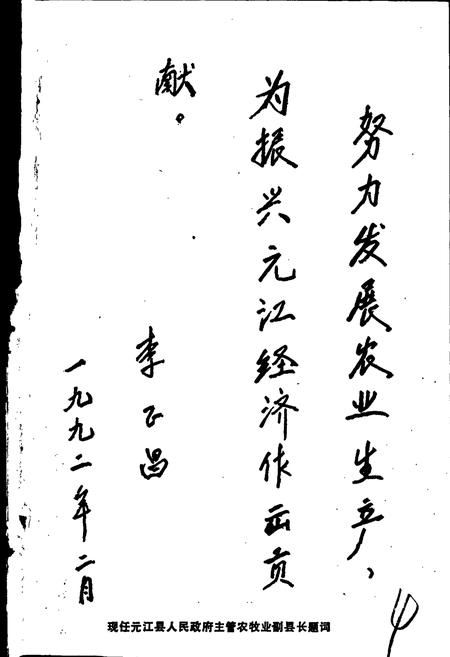 努力发展农业生产，
为振兴元江经济作出贡
献。
李正昌
一九九二年二月
现任元江县人民政府主管农牧业副县长题词